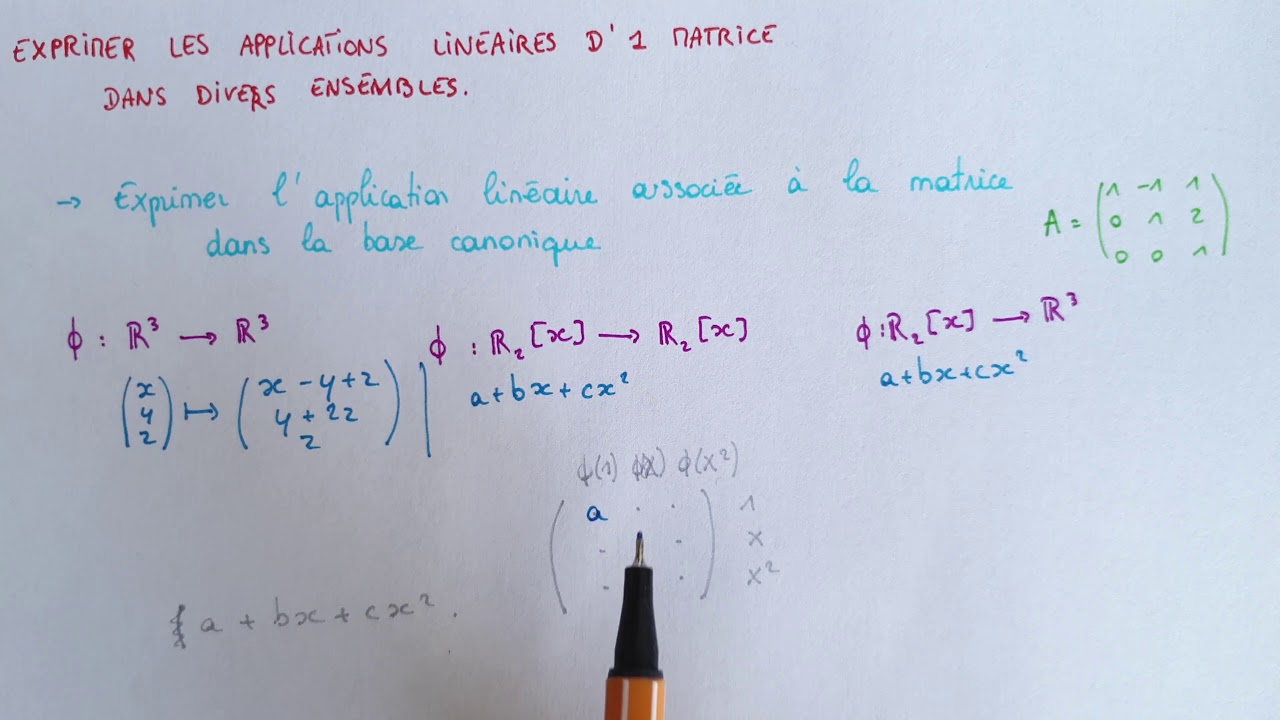 EXPRIMER LES APPLICATIONS LINÉAIRES D'1 MATRICE
DANS DIVERS ENSEMBLES.
→ Exprimer l'application linéaire associée à la matrice
dans la base canonique
A = (1 -1 1
0 1 2
0 0 1)
ϕ : ℝ³ → ℝ³
(x
y
z) ↦ (x - y + z
y + 2z
z)
ϕ : ℝ₂[x] → ℝ₂[x]
a + bx + cx²
ϕ : ℝ₂[x] → ℝ³
a + bx + cx²
ϕ(1) ϕ(X) ϕ(X²)
( a · · ) 1
· · X
· · X²
a + bx + cx² .